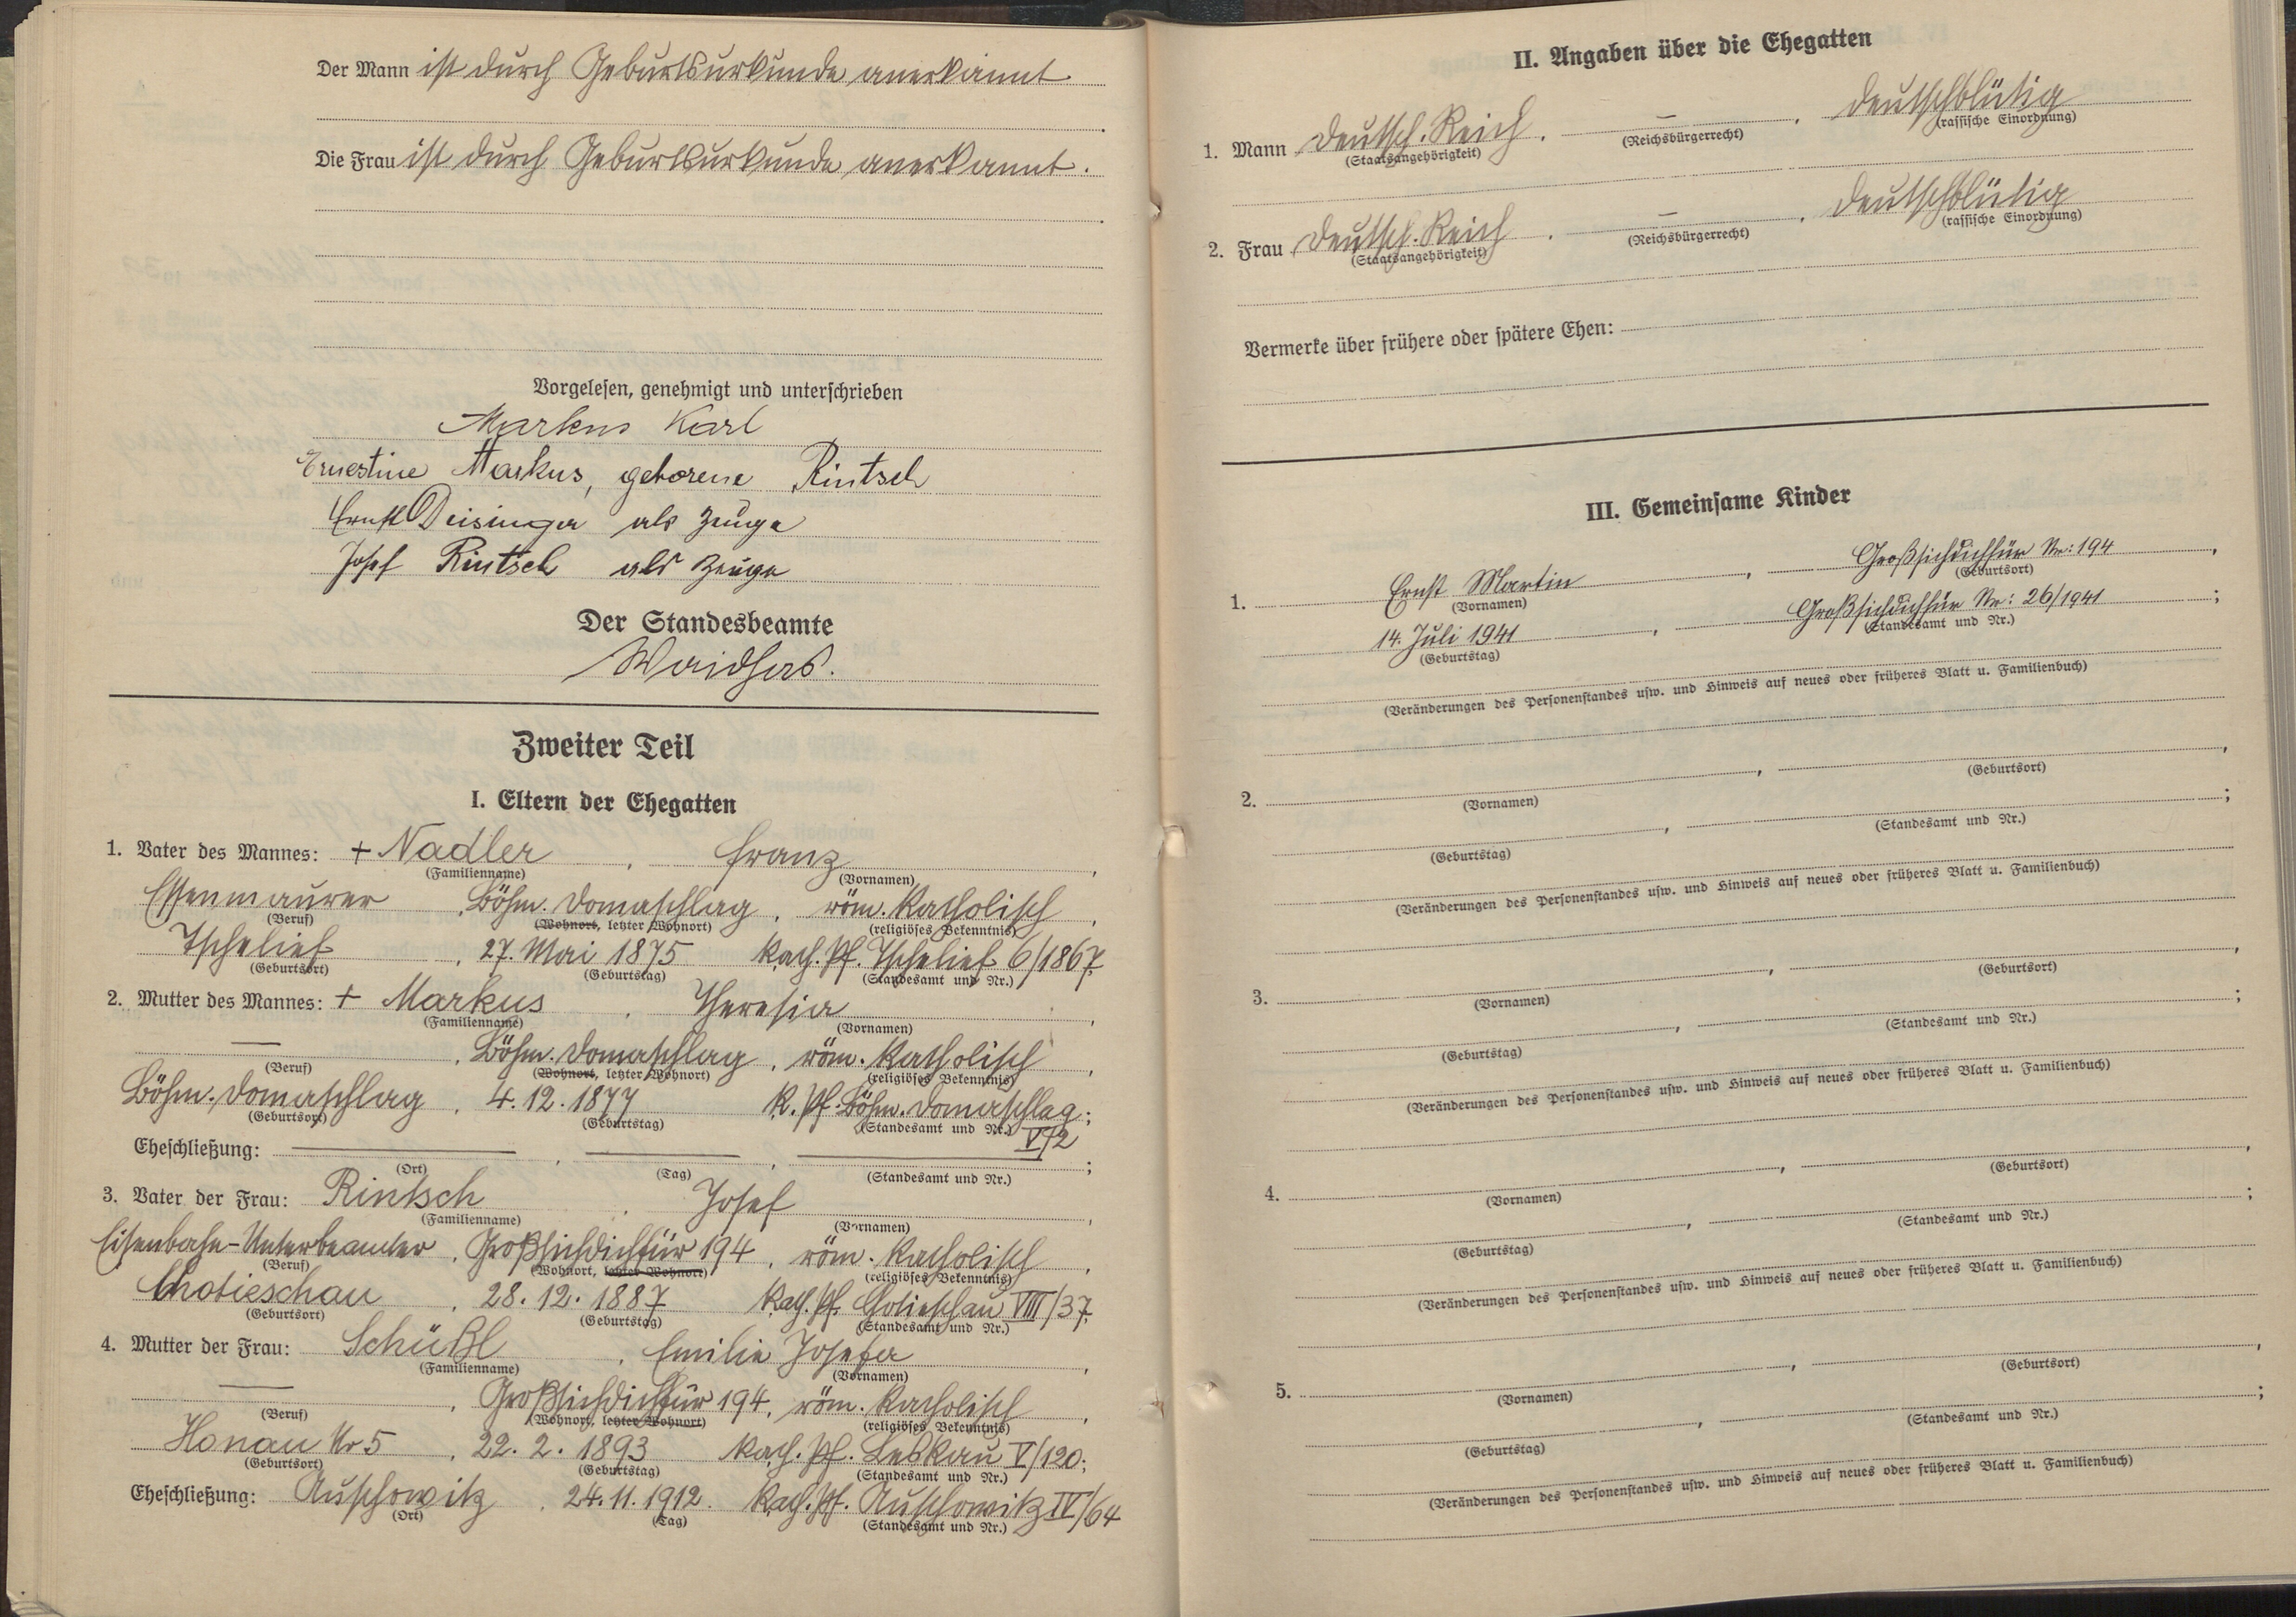 Der Mann ist durch Geburtsurkunde anerkannt
Die Frau ist durch Geburtsurkunde anerkannt.
Vorgelesen, genehmigt und unterschrieben
Markus Karl
Ernestine Markus, geborene Rintsch
Ernst Deisinger als Zeuge
Josef Rintsch als Zeuge
Der Standesbeamte
Waidhas.
Zweiter Teil
I. Eltern der Ehegatten
1. Vater des Mannes: + Nadler, Franz,
(Familienname) (Vornamen)
Essenmaurer, Böhm. Domaschlag, röm. katholisch,
(Beruf) (Wohnort, letzter Wohnort) (religiöses Bekenntnis)
Tschelief, 27. Mai 1875 kath. Pf. Tschelief 6/1867;
(Geburtsort) (Geburtstag) (Standesamt und Nr.)
2. Mutter des Mannes: + Markus, Theresia,
(Familienname) (Vornamen)
—, Böhm. Domaschlag, röm. katholisch,
(Beruf) (Wohnort, letzter Wohnort) (religiöses Bekenntnis)
Böhm. Domaschlag, 4.12.1877 k. Pf. Böhm. Domaschlag;
(Geburtsort) (Geburtstag) (Standesamt und Nr.) V/2
Eheschließung: —, —, —;
(Ort) (Tag) (Standesamt und Nr.)
3. Vater der Frau: Rintsch, Josef,
(Familienname) (Vornamen)
Eisenbahn-Unterbeamter, Großsichdichfür 194, röm. katholisch,
(Beruf) (Wohnort, letzter Wohnort) (religiöses Bekenntnis)
Chotieschau, 28.12.1887 kath. Pf. Chotieschau VIII/37;
(Geburtsort) (Geburtstag) (Standesamt und Nr.)
4. Mutter der Frau: Schüßl, Emilie Josefa,
(Familienname) (Vornamen)
—, Großsichdichfür 194, röm. katholisch,
(Beruf) (Wohnort, letzter Wohnort) (religiöses Bekenntnis)
Honau Nr 5, 22.2.1893 kath. Pf. Leskau V/120;
(Geburtsort) (Geburtstag) (Standesamt und Nr.)
Eheschließung: Auschowitz, 24.11.1912. kath. Pf. Auschowitz IV/64
(Ort) (Tag) (Standesamt und Nr.)
II. Angaben über die Ehegatten
1. Mann Deutsch. Reich, —, deutschblütig
(Staatsangehörigkeit) (Reichsbürgerrecht) (rassische Einordnung)
2. Frau Deutsch. Reich, —, deutschblütig
(Staatsangehörigkeit) (Reichsbürgerrecht) (rassische Einordnung)
Vermerke über frühere oder spätere Ehen:
III. Gemeinsame Kinder
1. Ernst Martin, Großsichdichfür Nr: 194,
(Vornamen) (Geburtsort)
14. Juli 1941, Großsichdichfür Nr: 26/1941;
(Geburtstag) (Standesamt und Nr.)
(Veränderungen des Personenstandes usw. und Hinweis auf neues oder früheres Blatt u. Familienbuch)
2. , ,
(Vornamen) (Geburtsort)
, ;
(Geburtstag) (Standesamt und Nr.)
(Veränderungen des Personenstandes usw. und Hinweis auf neues oder früheres Blatt u. Familienbuch)
3. , ,
(Vornamen) (Geburtsort)
, ;
(Geburtstag) (Standesamt und Nr.)
(Veränderungen des Personenstandes usw. und Hinweis auf neues oder früheres Blatt u. Familienbuch)
4. , ,
(Vornamen) (Geburtsort)
, ;
(Geburtstag) (Standesamt und Nr.)
(Veränderungen des Personenstandes usw. und Hinweis auf neues oder früheres Blatt u. Familienbuch)
5. , ,
(Vornamen) (Geburtsort)
, ;
(Geburtstag) (Standesamt und Nr.)
(Veränderungen des Personenstandes usw. und Hinweis auf neues oder früheres Blatt u. Familienbuch)